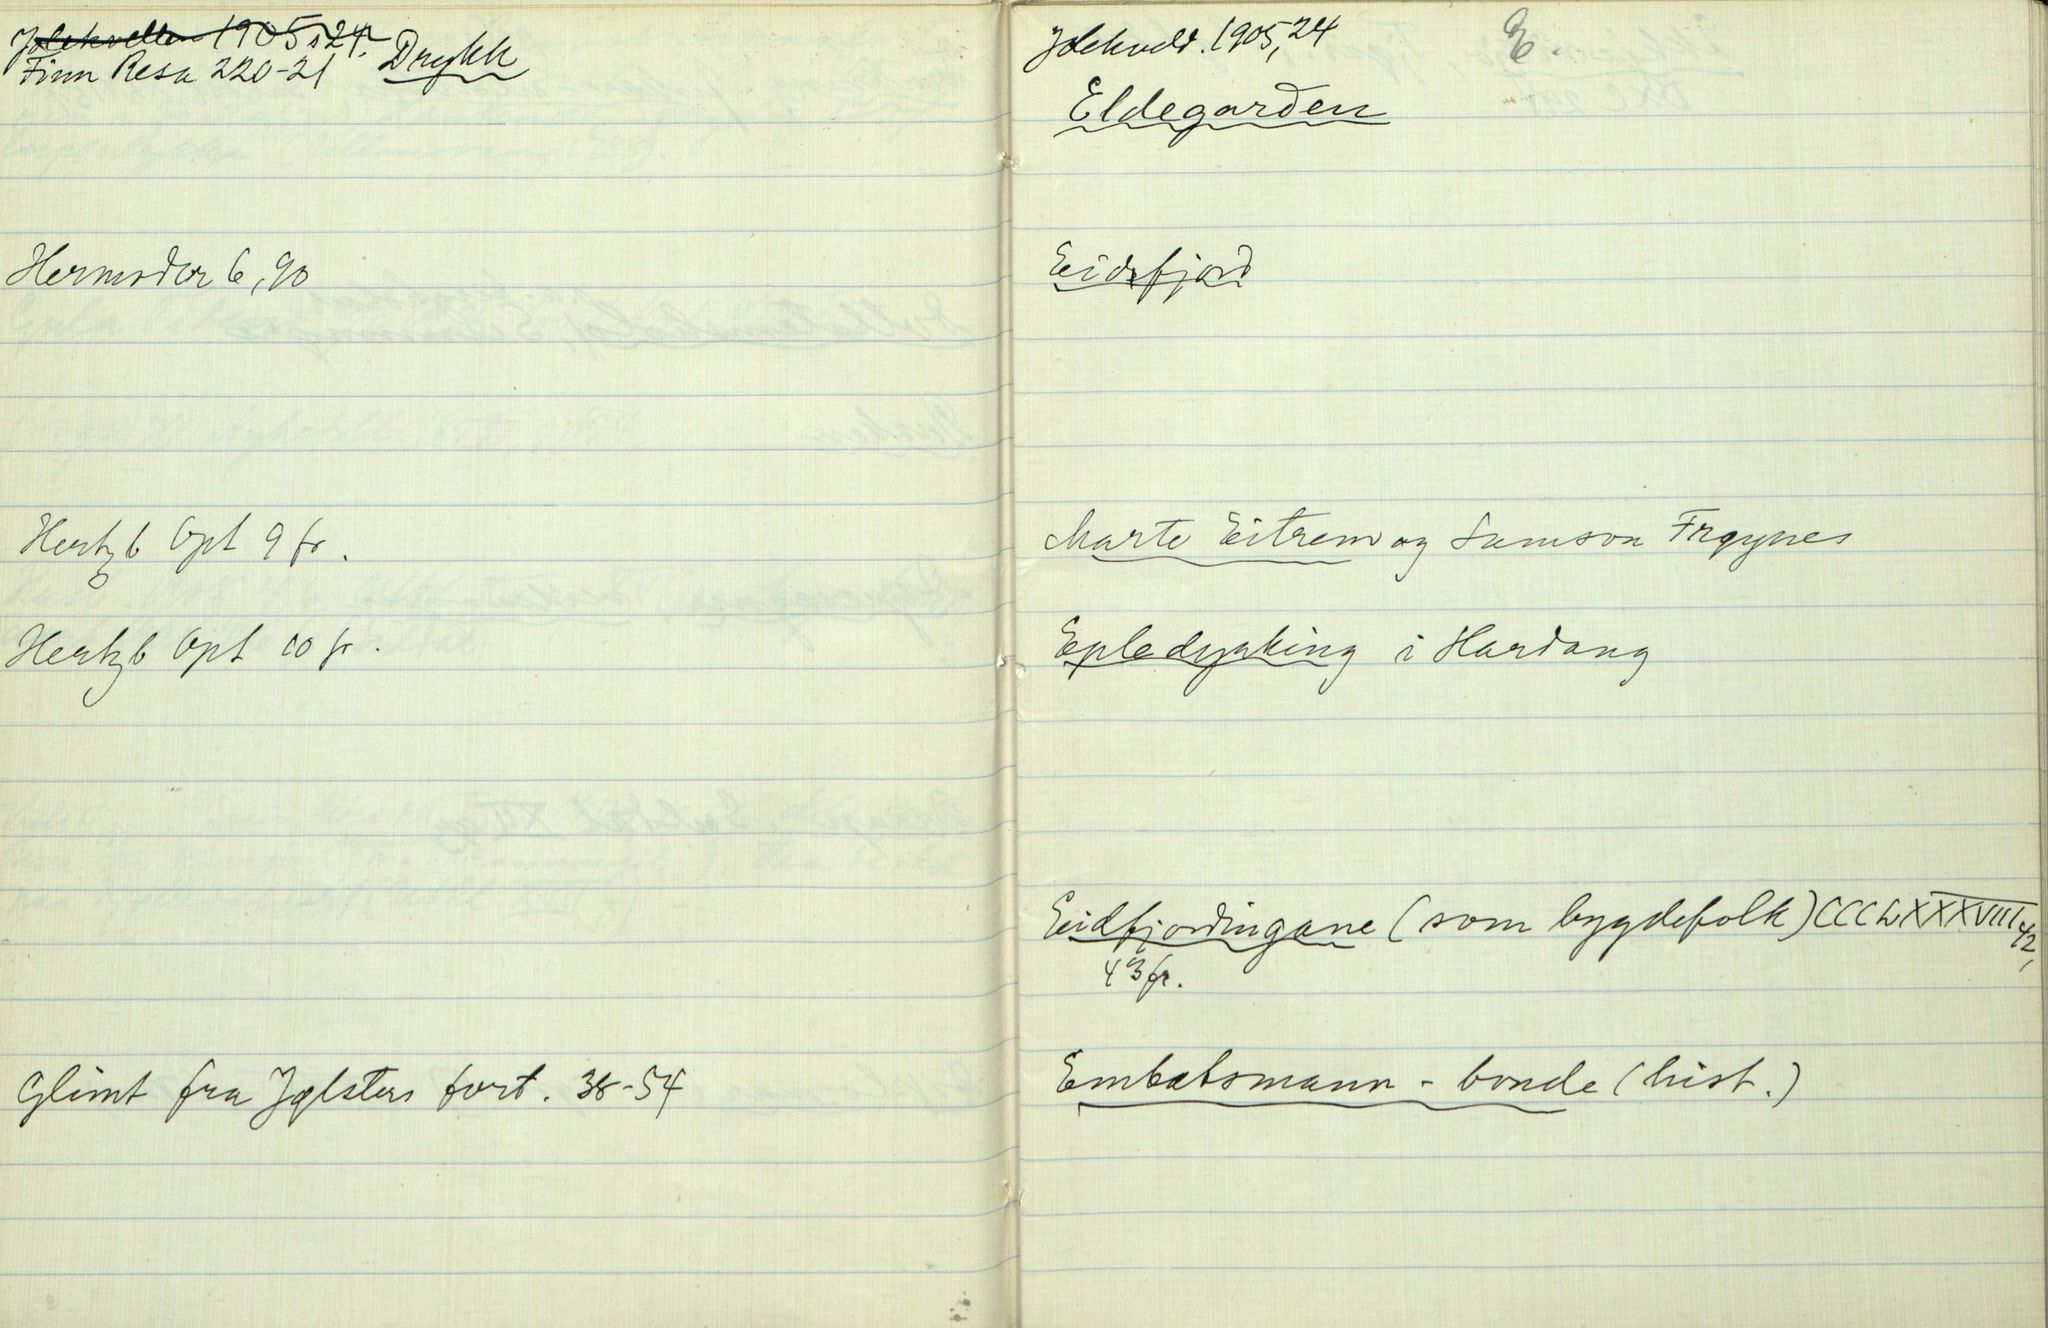 Jolekvellen 1905, 24.
Finn Resa 220-21 Drykk
Hermoder 6, 90
Hertzb Opt 9 fr.
Hertzb Opt 10 fr.
Glimt fra Jølsters fort. 38-54
Jolekveld. 1905, 24 E.
Eldegarden
Eidsfjord
Marte Eitrem og Samson Frøynes
Epledyrking i Hardang
Eidfjordingane (som bygdefolk) CCCLXXXVIII 42,
43 fr.
Embetsmann - bonde (hist.)